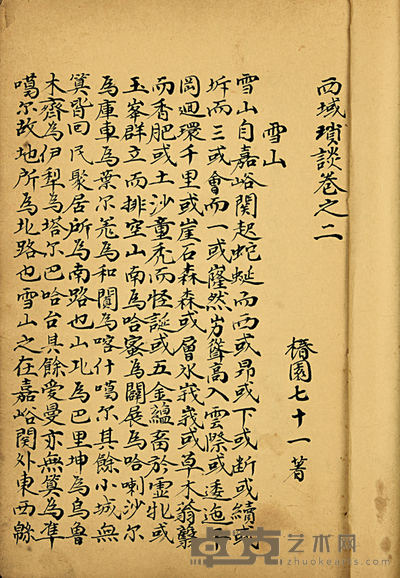 西域瑣談卷之二
椿園七十一著
雪山
雪山自嘉峪関起蛇蜒而西或昻或下或断或續或
坼而三或會而一或窿然岃聳高入雲際或逶迤
岡迴環千里或崖石森森或層氷峩峩或草木蓊蘙
而香肥或土沙童禿而怪誕或五金蘊畜於虛牝或
玉峯群立而排空山南為哈蜜為闢展為哈喇沙尔
為庫車為葉尔羗為和闐為喀什噶尔其餘小城無
筭皆回民聚居所為南路也山北為巴里坤為烏魯
木齊為伊犁為塔尔巴哈台其餘愛曼亦無筭為凖
噶尔故地所為北路也雪山之在嘉峪関外東西緜
卓克艺术网